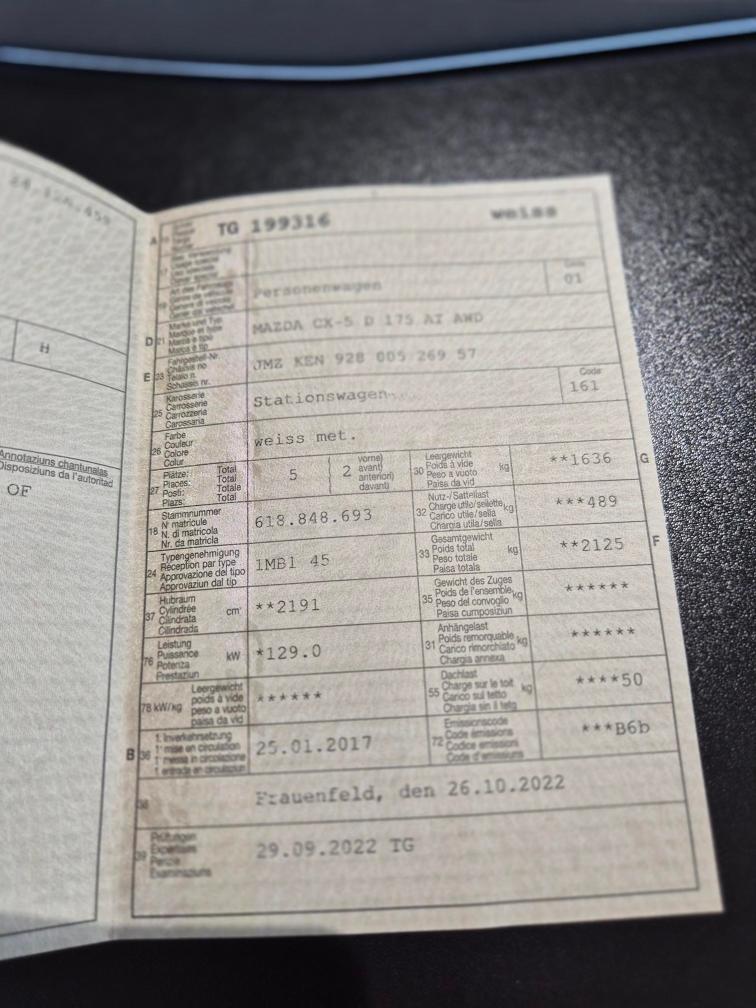 H
Annotaziuns chantunalas
Disposiziuns da l'autoritad
OF
A TG 199316 weiss
Personenwagen Code 01
D 21 Marke und Typ MAZDA CX-5 D 175 AT AWD
E 23 Fahrgestell-Nr. JMZ KEN 928 005 269 57
Châssis no
Telaio n.
Schassis nr.
25 Karosserie Stationswagen Code 161
Carrosserie
Carrozzeria
Carossaria
26 Farbe weiss met.
Couleur
Colore
Colur
27 Plätze: Total 5 2 vorne)
Places: Total avant)
Posti: Totale anteriori)
Plazs: Total davant)
30 Leergewicht kg **1636 G
Poids à vide
Peso a vuoto
Paisa da vid
18 Stammnummer 618.848.693
N° matricule
N. di matricola
Nr. da matricla
32 Nutz-/Sattellast kg ***489
Charge utile/sellette
Carico utile/sella
Chargia utila/sella
24 Typengenehmigung 1MB1 45
Réception par type
Approvazione del tipo
Approvaziun dal tip
33 Gesamtgewicht kg **2125 F
Poids total
Peso totale
Paisa totala
37 Hubraum cm³ **2191
Cylindrée
Cilindrata
Cilindrada
35 Gewicht des Zuges kg ******
Poids de l'ensemble
Peso del convoglio
Paisa cumposiziun
76 Leistung kW *129.0
Puissance
Potenza
Prestaziun
31 Anhängelast kg ******
Poids remorquable
Carico rimorchiato
Chargia annexa
78 kW/kg Leergewicht ******
poids à vide
peso a vuoto
paisa da vid
55 Dachlast kg ****50
Charge sur le toit
Carico sul tetto
Chargia sin il tetg
B 36 1. Inverkehrsetzung 25.01.2017
1re mise en circulation
1a messa in circolazione
1. entrada en circulaziun
72 Emissionscode ***B6b
Code émissions
Codice emissioni
Code d'emissiuns
38 Frauenfeld, den 26.10.2022
39 Prüfungen 29.09.2022 TG
Expertises
Perizie
Examinaziuns